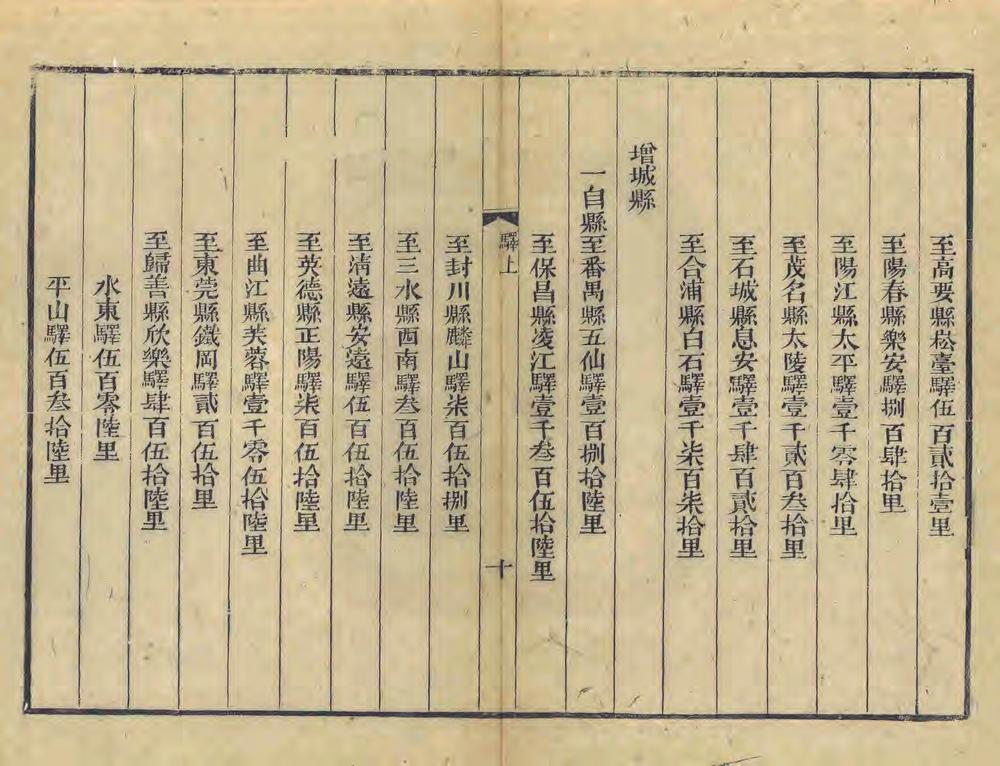 至高要縣崧臺驛伍百貳拾壹里
至陽春縣樂安驛捌百肆拾里
至陽江縣太平驛壹千零肆拾里
至茂名縣太陵驛壹千貳百叁拾里
至石城縣息安驛壹千肆百貳拾里
至合浦縣白石驛壹千柒百柒拾里
增城縣
一自縣至番禺縣五仙驛壹百捌拾陸里
至保昌縣凌江驛壹千叁百伍拾陸里
驛上
十
至封川縣麟山驛柒百伍拾捌里
至三水縣西南驛叁百伍拾陸里
至淸遠縣安遠驛伍百伍拾陸里
至英德縣正陽驛柒百伍拾陸里
至曲江縣芙蓉驛壹千零伍拾陸里
至東莞縣鐵岡驛貳百伍拾里
至歸善縣欣樂驛肆百伍拾陸里
水東驛伍百零陸里
平山驛伍百叁拾陸里